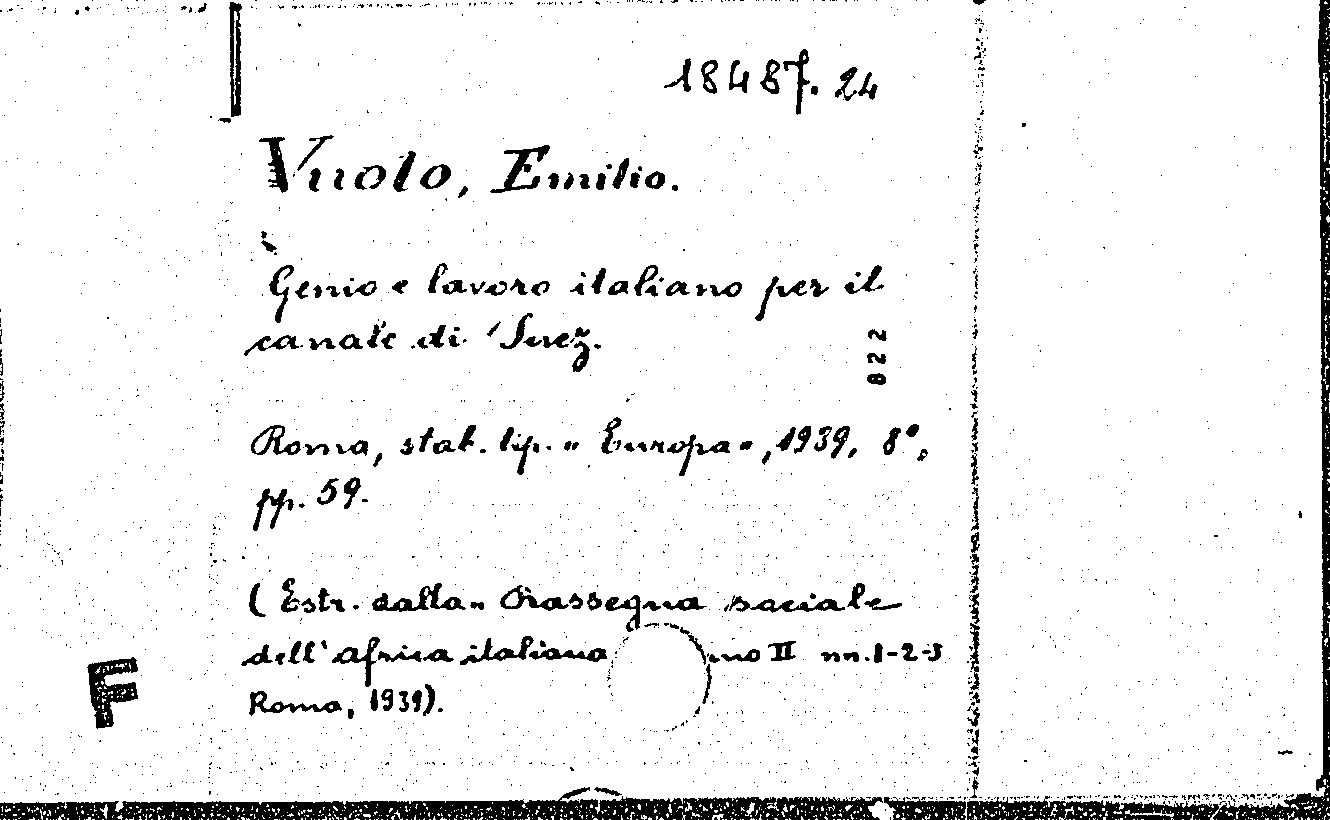 18487. 24
Vuolo, Emilio.
Genio e lavoro italiano per il
canale di Suez.
022
Roma, stab. tip. " Europa ", 1939, 8°,
pp. 59.
( Estr. dalla " Rassegna sociale
dell' africa italiana nno II nn. 1-2-3
Roma, 1939).
F